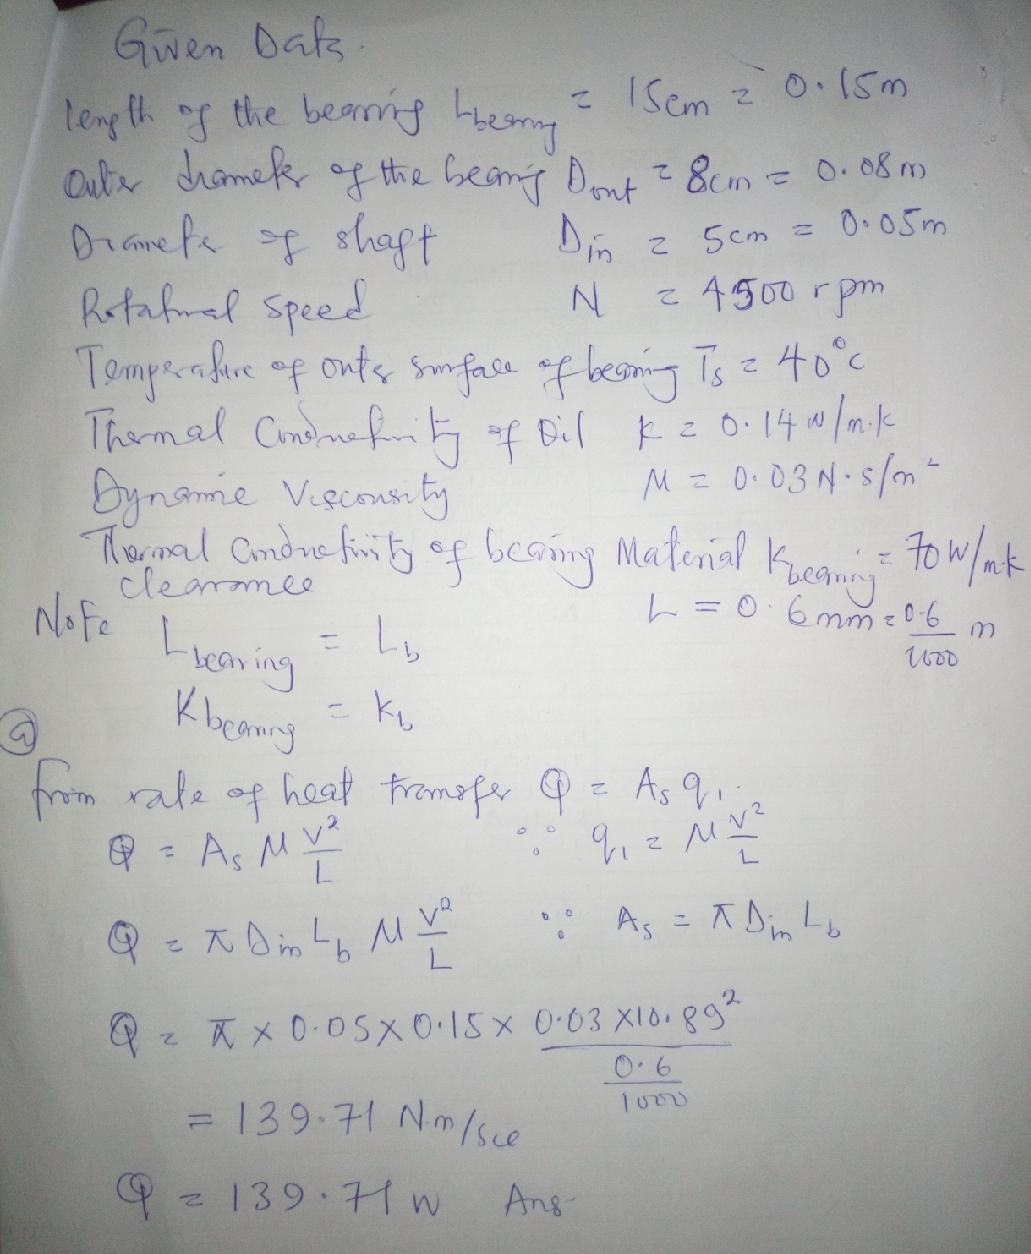 Given Data.
length of the bearing Lbearing = 15cm = 0.15m
Outer diameter of the bearing Dout = 8cm = 0.08m
Diameter of shaft Din = 5cm = 0.05m
Rotatinal speed N = 4500 rpm
Temperature of outer surface of bearing Ts = 40°c
Thermal Conductivity of Oil k = 0.14 W/m.k
Dynamic Viscousity M = 0.03 N.s/m²
Thermal Conductivity of bearing Material Kbearing = 70 W/mk
clearance L = 0.6mm = 0.6/1000 m
Note Lbearing = Lb
Kbearing = Kb
(a)
from rate of heat transfer Q = As q1.
Q = As M V²/L ∵ q1 = M V²/L
Q = π Din Lb M V²/L ∵ As = π Din Lb
Q = π × 0.05 × 0.15 × 0.03 × 10.89² / (0.6/1000)
= 139.71 N.m/sec
Q = 139.71 W Ans